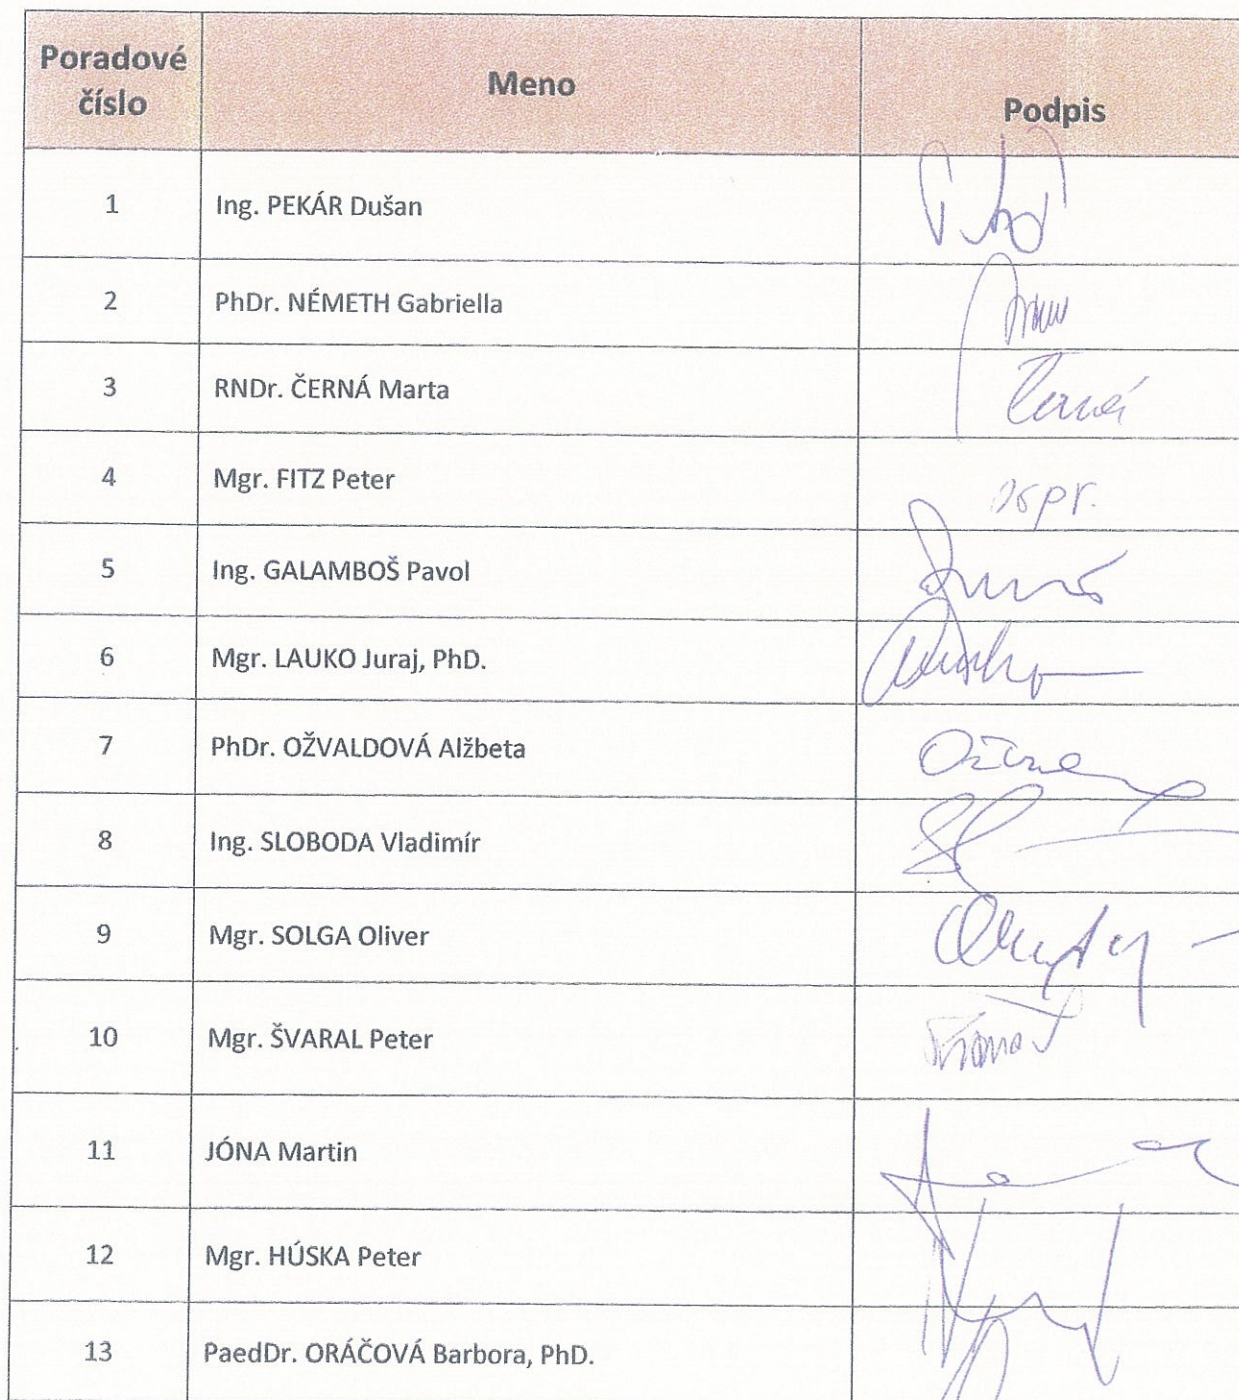 Poradové číslo Meno Podpis
1 Ing. PEKÁR Dušan
2 PhDr. NÉMETH Gabriella
3 RNDr. ČERNÁ Marta Černá
4 Mgr. FITZ Peter ospr.
5 Ing. GALAMBOŠ Pavol
6 Mgr. LAUKO Juraj, PhD.
7 PhDr. OŽVALDOVÁ Alžbeta
8 Ing. SLOBODA Vladimír
9 Mgr. SOLGA Oliver
10 Mgr. ŠVARAL Peter
11 JÓNA Martin
12 Mgr. HÚSKA Peter
13 PaedDr. ORÁČOVÁ Barbora, PhD.